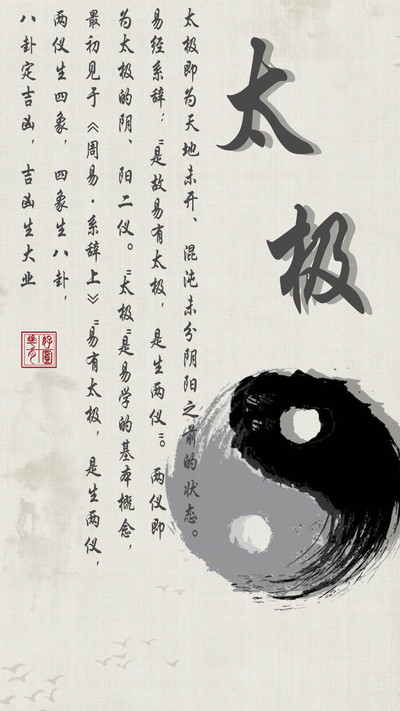 太极
太极即为天地未开、混沌未分阴阳之前的状态。
易经系辞："是故易有太极，是生两仪"。两仪即
为太极的阴、阳二仪。"太极"是易学的基本概念，
最初见于《周易·系辞上》"易有太极，是生两仪，
两仪生四象，四象生八卦，
八卦定吉凶，吉凶生大业